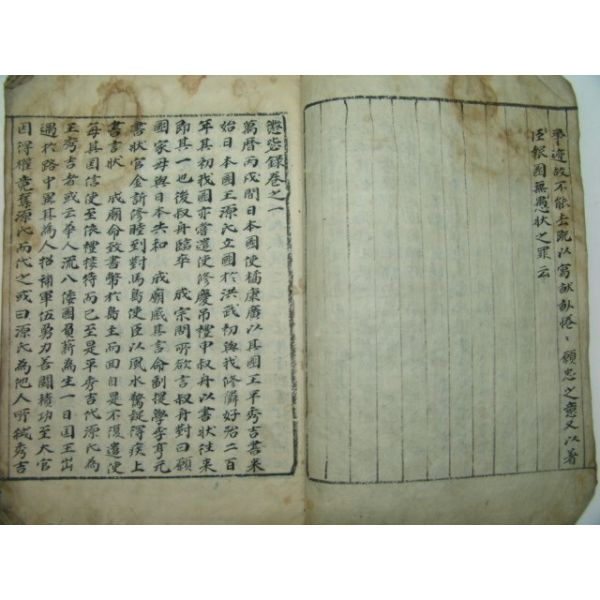 畢邊故不能去既以寓畎畝惓惓願忠之意又以著
臣報國無愚狀之罪云
懲毖錄卷之一
萬曆丙戌間日本國使橘康廣以其國王平秀吉書來
始日本國王源氏立國於洪武初與我修隣好殆二百
年其初我國亦嘗遣使修慶吊禮申叔舟以書狀往來
即其一也後叔舟臨卒 成宗問所欲言叔舟對曰願
國家毋與日本失和 成廟感其言命副提學李亨元
書狀官金訢修睦到對馬島使臣以風水驚疑得疾上
書言狀 成廟命致書幣於島主而回自是不復遣使
每其國信使至依禮接待而已至是平秀吉代源氏爲
王秀吉者或云華人流入倭國負薪爲生一日國王出
遇於路中異其爲人招補軍伍勇力善鬪積功至大官
因得權竟奪源氏而代之或曰源氏爲他人所弒秀吉